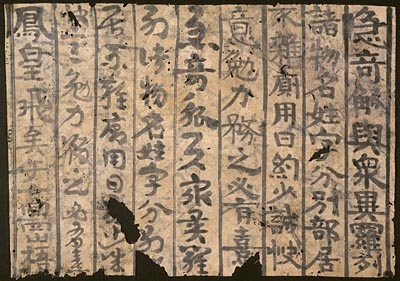 急奇觚與衆異羅列
諸物名姓字分別部居
不雜廁用日約少誠快
意勉力務之必有憙
急奇觚衆異羅
列諸物名姓字分別
居不雜廁用日
意勉力務之必有憙
鳳皇飛